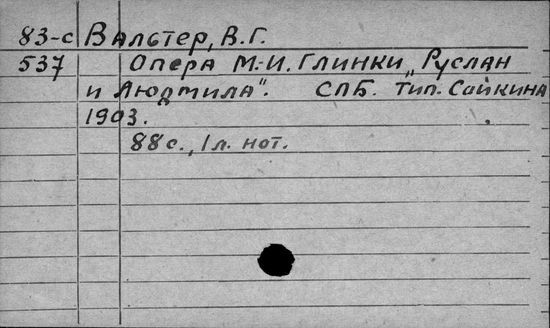 83-с Вальтер, В.Г.
537 Опера М.И. Глинки „Руслан
и Людмила". СПБ. тип. Сойкина
1903.
88с., 1л. нот.